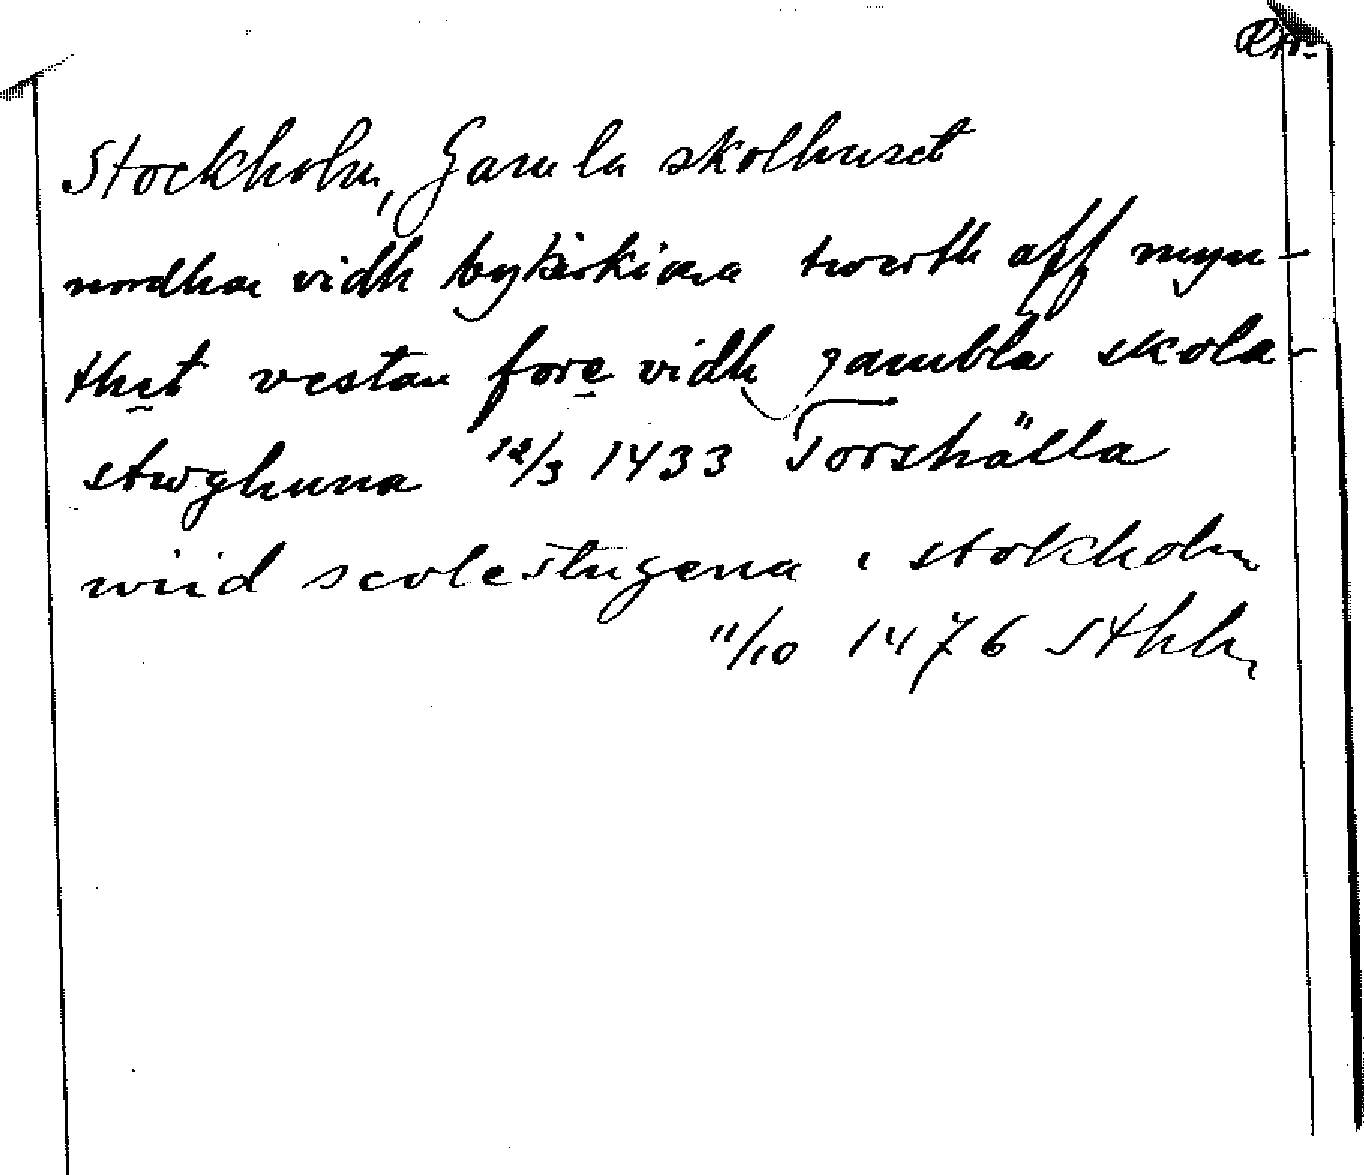 Stockholm, Gamla skolhuset
nordhan vidh bykirkiona twerth aff myn-
thet vestan fore vidh gambla skola-
stwghuna 12/3 1433 Torshälla
wiid scolestugena i stokholm
11/10 1476 Sthlm